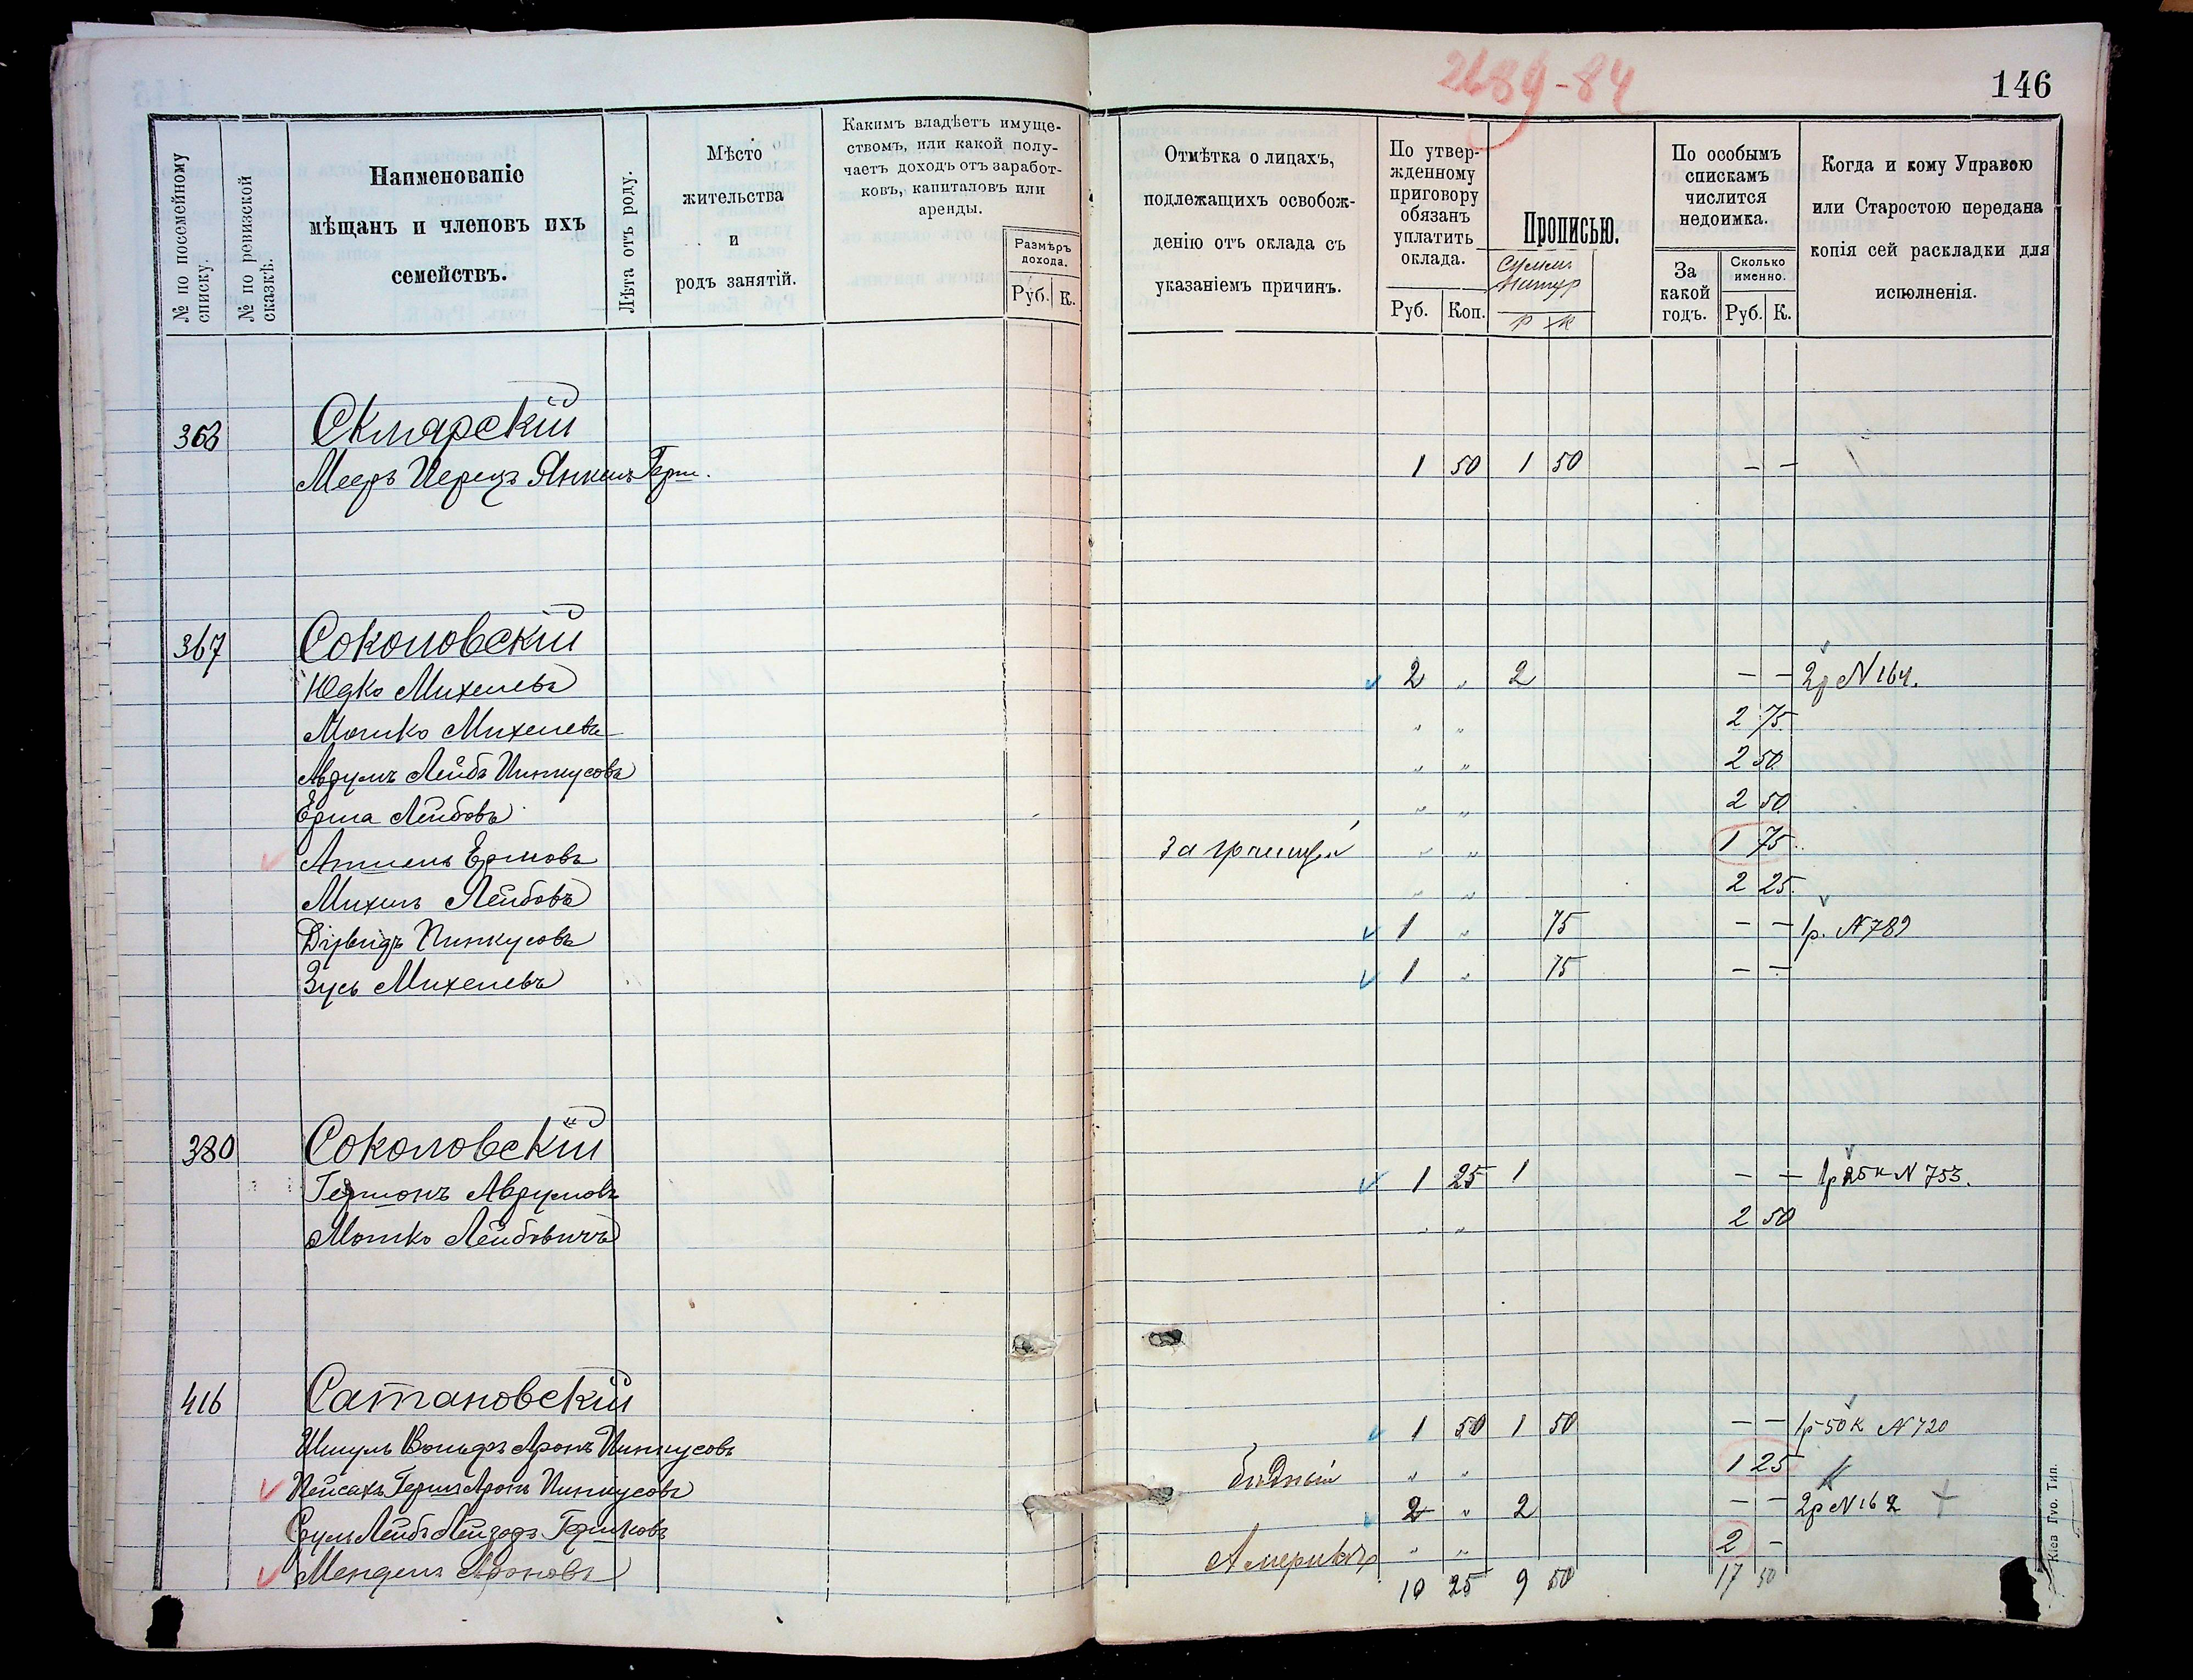 2689-84
146
№ по посемейному списку.
№ по ревизской сказкѣ.
Наименованіе
мѣщанъ и членовъ ихъ
семействъ.
Лѣта отъ роду.
Мѣсто
жительства
и
родъ занятій.
Какимъ владѣетъ имуще-
ствомъ, или какой полу-
чаетъ доходъ отъ заработ-
ковъ, капиталовъ или
аренды.
Размѣръ
дохода.
Руб. К.
Отмѣтка о лицахъ,
подлежащихъ освобож-
денію отъ оклада съ
указаніемъ причинъ.
По утвер-
жденному
приговору
обязанъ
уплатить
оклада.
Руб. Коп.
Прописью.
Р К
По особымъ
спискамъ
числится
недоимка.
За
какой
годъ.
Сколько
именно.
Руб. К.
Когда и кому Управою
или Старостою передана
копія сей раскладки для
исполненія.
363 Склярскій
Мееръ Перецъ Янкель Герш. 1 50 1 50 — —
367 Соколовскій
Юдко Михелевъ 2 „ 2 — — 2р N 164.
Мошко Михелевъ „ „ 2 75
Аврумъ Лейбъ Пинкусовъ „ „ 2 50
Ерша Лейбовъ „ „ 2 50
Аншель Ершовъ За границей „ „ 1 75
Михель Лейбовъ „ „ 2 25
Дувидъ Пинкусовъ 1 „ 75 — — 1р. N 789
Зусь Михелевъ 1 „ 75 — —
380 Соколовскій
Гершонъ Аврумовъ 1 25 1 — — 1р 25к N 753.
Мошко Лейбовичъ „ „ 2 50
416 Сатановскій
Шмуль Вольфъ Аронъ Пинкусовъ 1 50 1 50 — — 1р 50к N 720
Пейсахъ Гершъ Аронъ Пинкусовъ бѣдный „ „ 1 25
Срулъ Лейбъ Лейзоръ Гершковъ 2 „ 2 — — 2р N 162
Мендель Ароновъ Америкѣ „ „ 2 -
10 25 9 50 17 50
Кіев Губ. Тип.